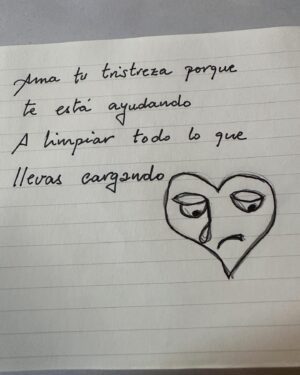 Ama tu tristreza porque
te está ayudando
A limpiar todo lo que
llevas cargando